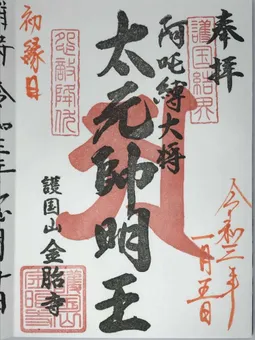 奉拝
護国結界
阿吒縛大将
太元帥明王
怨敵降伏
初縁日
護国山 金胎寺
令和三年
一月五日